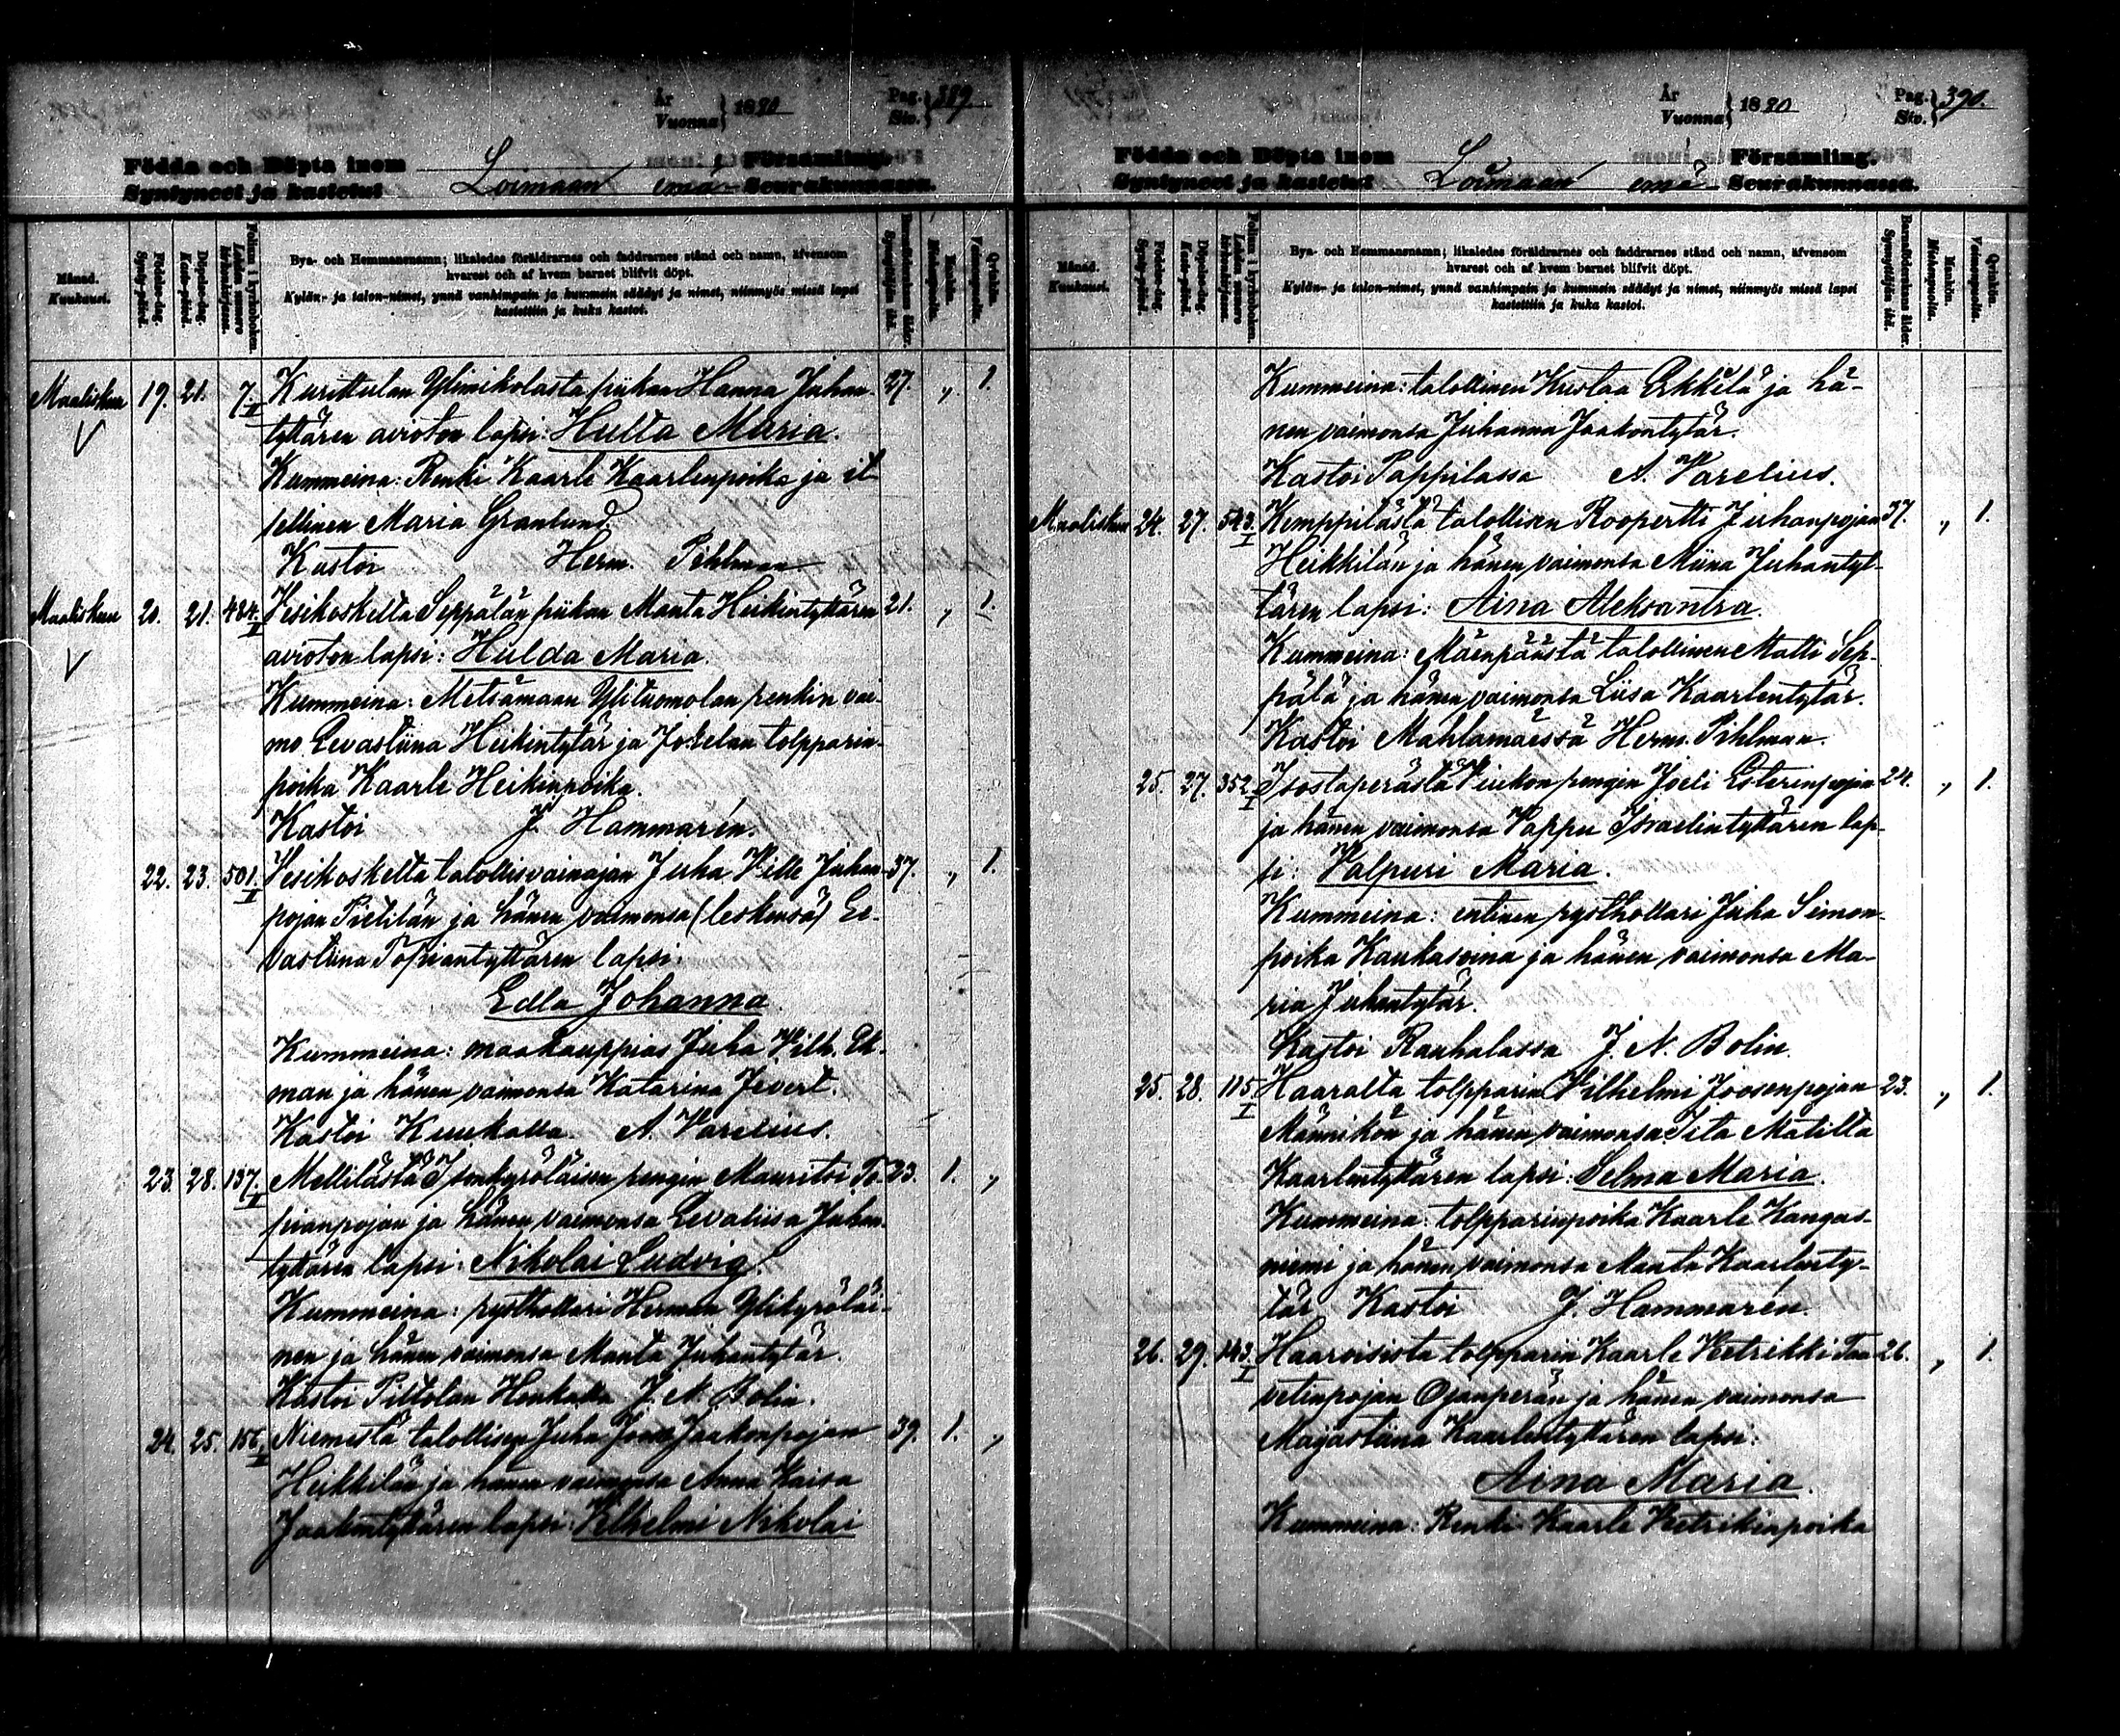 År
Vuonna } 1890
Pag.
Siv. } 389
Födda och Döpta inom Församling.
Syntyneet ja kastetut Loimaan emä Seurakunnassa.
Månad.
Kuukausi.
Födelse-dag.
Synty-päivä.
Döpelse-dag.
Kaste-päivä.
Folium i kyrkoboken.
Bya- och Hemmansnamn; likaledes föräldrarnes och faddrarnes stånd och namn, äfvensom
hvarest och af hvem barnet blifvit döpt.
Kylän- ja talon-nimet, ynnä vanhimpain ja kummein säädyt ja nimet, niinmyös missä lapsi
kastettiin ja kuka kastoi.
Barnaföderskans ålder.
Synnyttäjän ikä.
Mankön.
Miehenpuolia.
Qvinkön.
Vaimonpuolia.
Maaliskuu 19. 21. 7. I Kurittulan Ylimikolasta piikan Hanna Juhan- 27. „ 1.
tyttären avioton lapsi: Hulta Maria.
Kummeina: Renki Kaarle Kaarlenpoika ja it-
sellinen Maria Granlund.
Kastoi Herm. Pihlman
Maaliskuu 20. 21. 484. I Vesikoskelta Seppälän piikan Manta Heikintyttären 21. „ 1.
avioton lapsi: Hulda Maria.
Kummeina: Metsämaan Ylituomolan renkin vai-
mo Eevastiina Heikintytär ja Jokelan tolpparin-
poika Kaarle Heikinpoika.
Kastoi J. Hammarén.
22. 23. 501. I Vesikoskelta talollisvainajan Juha Ville Juhan- 37. „ 1.
pojan Pietilän ja hänen vaimonsa (leskensä) Ee-
vastiina Topiantyttären lapsi:
Edla Johanna
Kummeina: maakauppias Juha Vilh. Ek-
man ja hänen vaimonsa Katarina Jevert.
Kastoi A. Varelius.
23. 28. 137. I Mellilästä Isonkyröläisen rengin Mauritsi To- 23. 1. „
pianpojan ja hänen vaimonsa Eevaliisa Juhan-
tyttären lapsi: Nikolai Ludvig.
Kummeina: rusthollari Herman Ylikyröläi-
nen ja hänen vaimonsa Manta Juhantytär.
Kastoi J. N. Bolin.
24. 25. 156. I Niemistä talollisen Juha Joosen Jaakonpojan 39. 1. „
Heikkilän ja hänen vaimonsa Anna Kaisa
Jaakontyttären lapsi: Vilhelmi Nikolai
År
Vuonna } 1890
Pag.
Siv. } 390.
Födda och Döpta inom Församling.
Syntyneet ja kastetut Loimaan emä Seurakunnassa.
Månad.
Kuukausi.
Födelse-dag.
Synty-päivä.
Döpelse-dag.
Kaste-päivä.
Folium i kyrkoboken.
Bya- och Hemmansnamn; likaledes föräldrarnes och faddrarnes stånd och namn, äfvensom
hvarest och af hvem barnet blifvit döpt.
Kylän- ja talon-nimet, ynnä vanhimpain ja kummein säädyt ja nimet, niinmyös missä lapsi
kastettiin ja kuka kastoi.
Barnaföderskans ålder.
Synnyttäjän ikä.
Mankön.
Miehenpuolia.
Qvinkön.
Vaimonpuolia.
Kummeina: talollinen Kustaa Erkkilä ja hä-
nen vaimonsa Juhanna Jaakontytär.
Kastoi Pappilassa A. Varelius.
Maaliskuu 24. 27. 543. I Kemppilästä talollisen Roopertti Juhanpojan 37. „ 1.
Heikkilän ja hänen vaimonsa Miina Juhantyt-
tären lapsi: Aina Aleksantra.
Kummeina: Mäenpäästä talollinen Matti Sep-
pälä ja hänen vaimonsa Liisa Kaarlentytär.
Kastoi Mahlamäessä Herm. Pihlman.
25. 27. 352. I Isostaperästä Piukon rengin Joeli Esterinpojan 24. „ 1.
ja hänen vaimonsa Vappu Israelintyttären lap-
si: Valpuri Maria.
Kummeina: entinen rusthollari Juha Simon-
poika Kaukavoina ja hänen vaimonsa Ma-
ria Juhantytär.
Kastoi Rauhalassa J. N. Bolin.
25. 28. 115. I Haaralta tolpparin Vilhelmi Joosenpojan 23. „ 1.
Männikön ja hänen vaimonsa Iita Matilta
Kaarlentyttären lapsi: Selma Maria.
Kummeina: tolpparinpoika Kaarle Kangas-
niemi ja hänen vaimonsa Manta Kaarlenty-
tär Kastoi J. Hammarén.
26. 29. 143. I Haaroisista tolpparin Kaarle Retrikki Taa- 26. „ 1.
vetinpojan Ojanperän ja hänen vaimonsa
Majastiina Kaarlentyttären lapsi:
Aina Maria.
Kummeina: Renki Kaarle Retrikinpoika